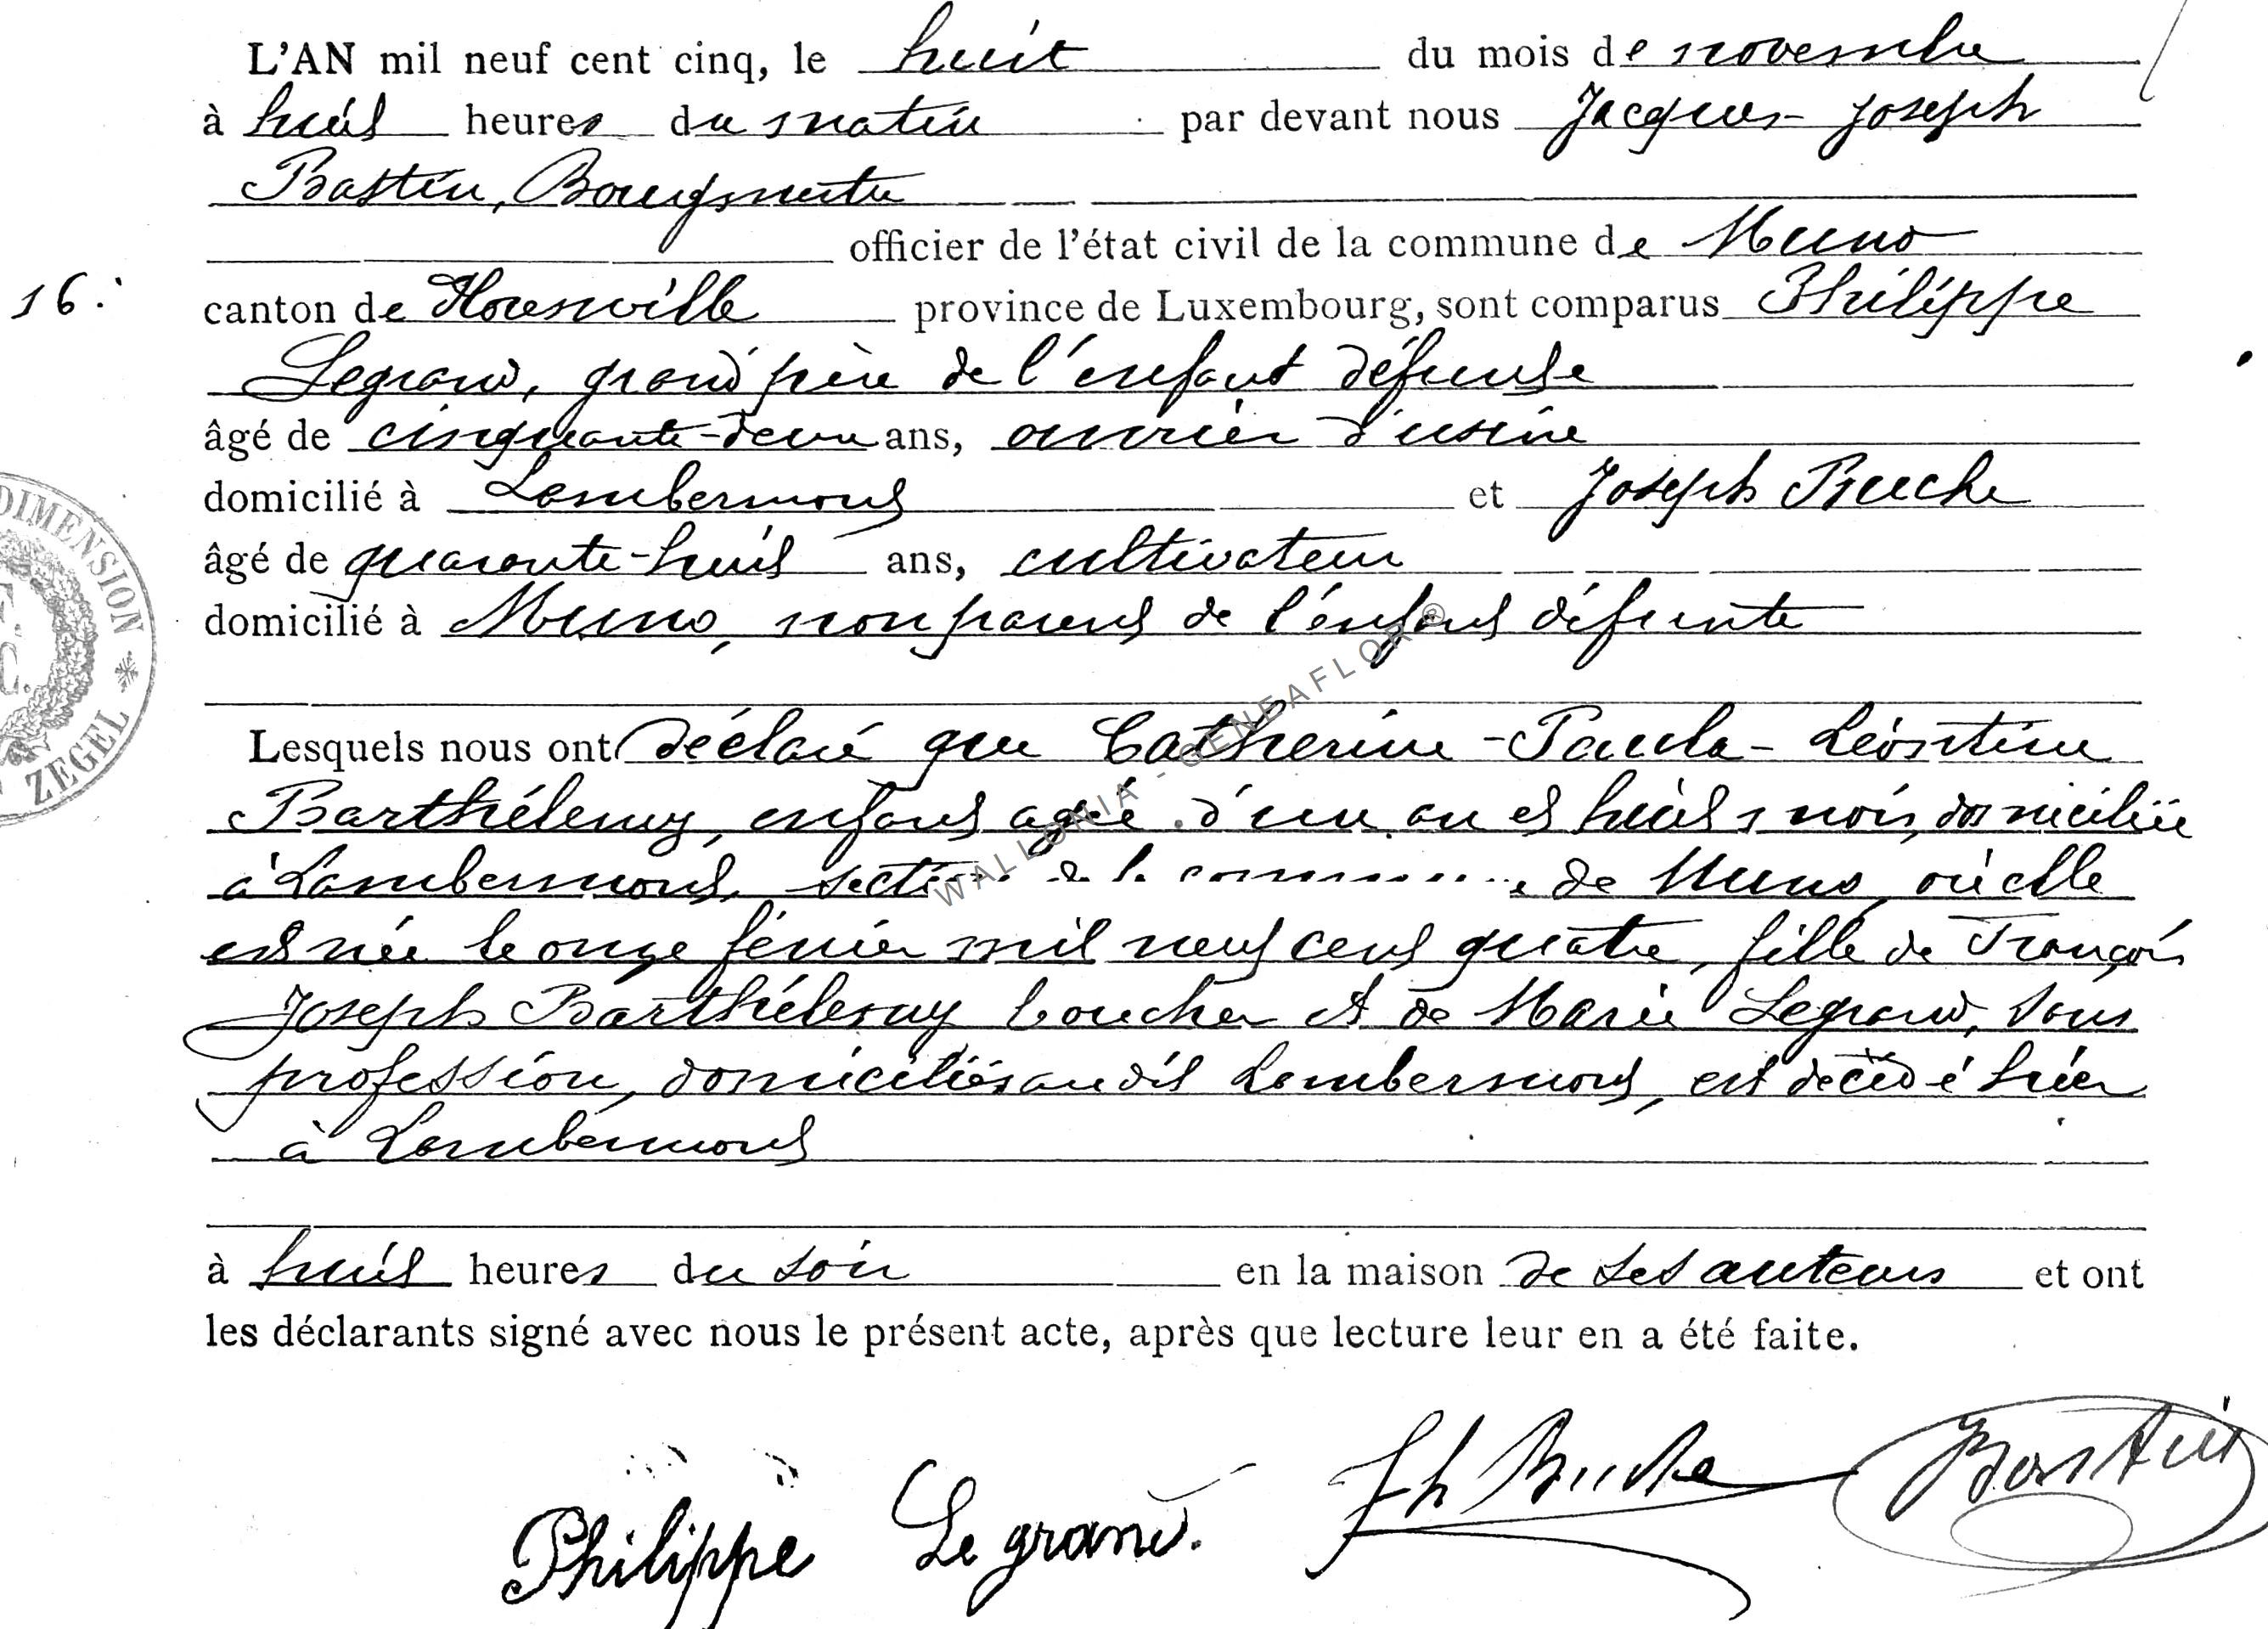 L'AN mil neuf cent cinq, le huit du mois de novembre
à huit heures du matin par devant nous Jacques-Joseph
Bastin, Bourgmestre
officier de l'état civil de la commune de Muno
16.
canton de Florenville province de Luxembourg, sont comparus Philippe
Legrand, grand père de l'enfant défunte
âgé de cinquante-deux ans, ouvrier d'usine
domicilié à Lambermont et Joseph Buche
âgé de quarante-huit ans, cultivateur
domicilié à Muno, non parent de l'enfant défunte
DIMENSION * ZEGEL
Lesquels nous ont déclaré que Catherine-Paula-Léontine
Barthélemy, enfant agée d'un an et huit mois, domiciliée
à Lambermont, section de la commune de Muno, où elle
est née le onze février mil neuf cent quatre, fille de François
Joseph Barthélemy boucher et de Marie Legrand, sans
profession, domiciliés audit Lambermont, est décédé hier
à Lambermont
à huit heures du soir en la maison de ses auteurs et ont
les déclarants signé avec nous le présent acte, après que lecture leur en a été faite.
Philippe Legrand. Jh Buche Bastin
WALLONIA - GENEAFLOR ®